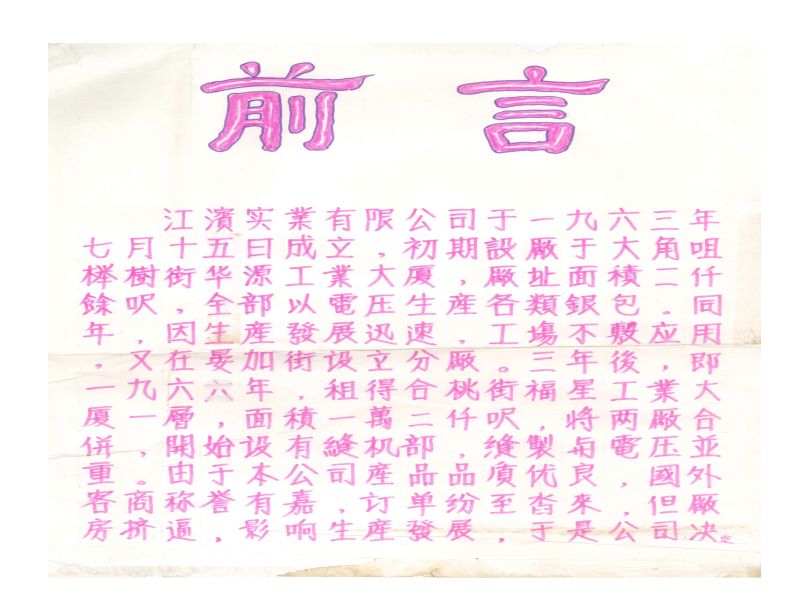 前言
江濱实業有限公司于一九六三年
七月十五日成立,初期設廠于大角咀
櫸樹街华源工業大厦,廠址面積二仟
餘呎,全部以電压生産各類銀包。同
年,因生産發展迅速,工塲不敷应用
,又在晏加街设立分廠。三年後,即
一九六六年,租得合桃街福星工業大
厦一層,面積一萬二仟呎,將两廠合
併,開始设有縫机部,缝製与電压並
重。由于本公司産品品质优良,國外
客商称誉有嘉,订单纷至沓來,但廠
房挤逼,影响生産發展,于是公司决
定